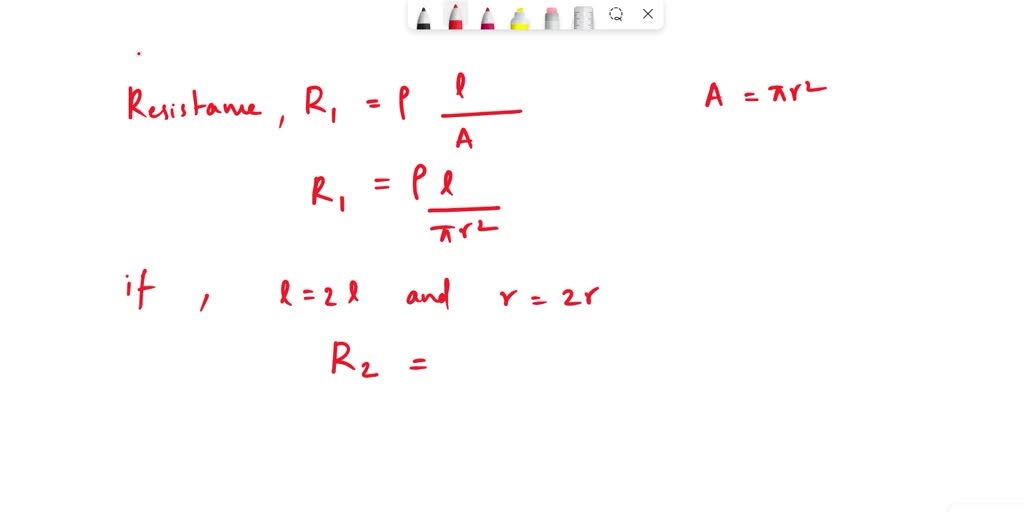 Resistance, R₁ = ρ l / A
A = πr²
R₁ = ρ l / πr²
if , l = 2 l and r = 2r
R₂ =